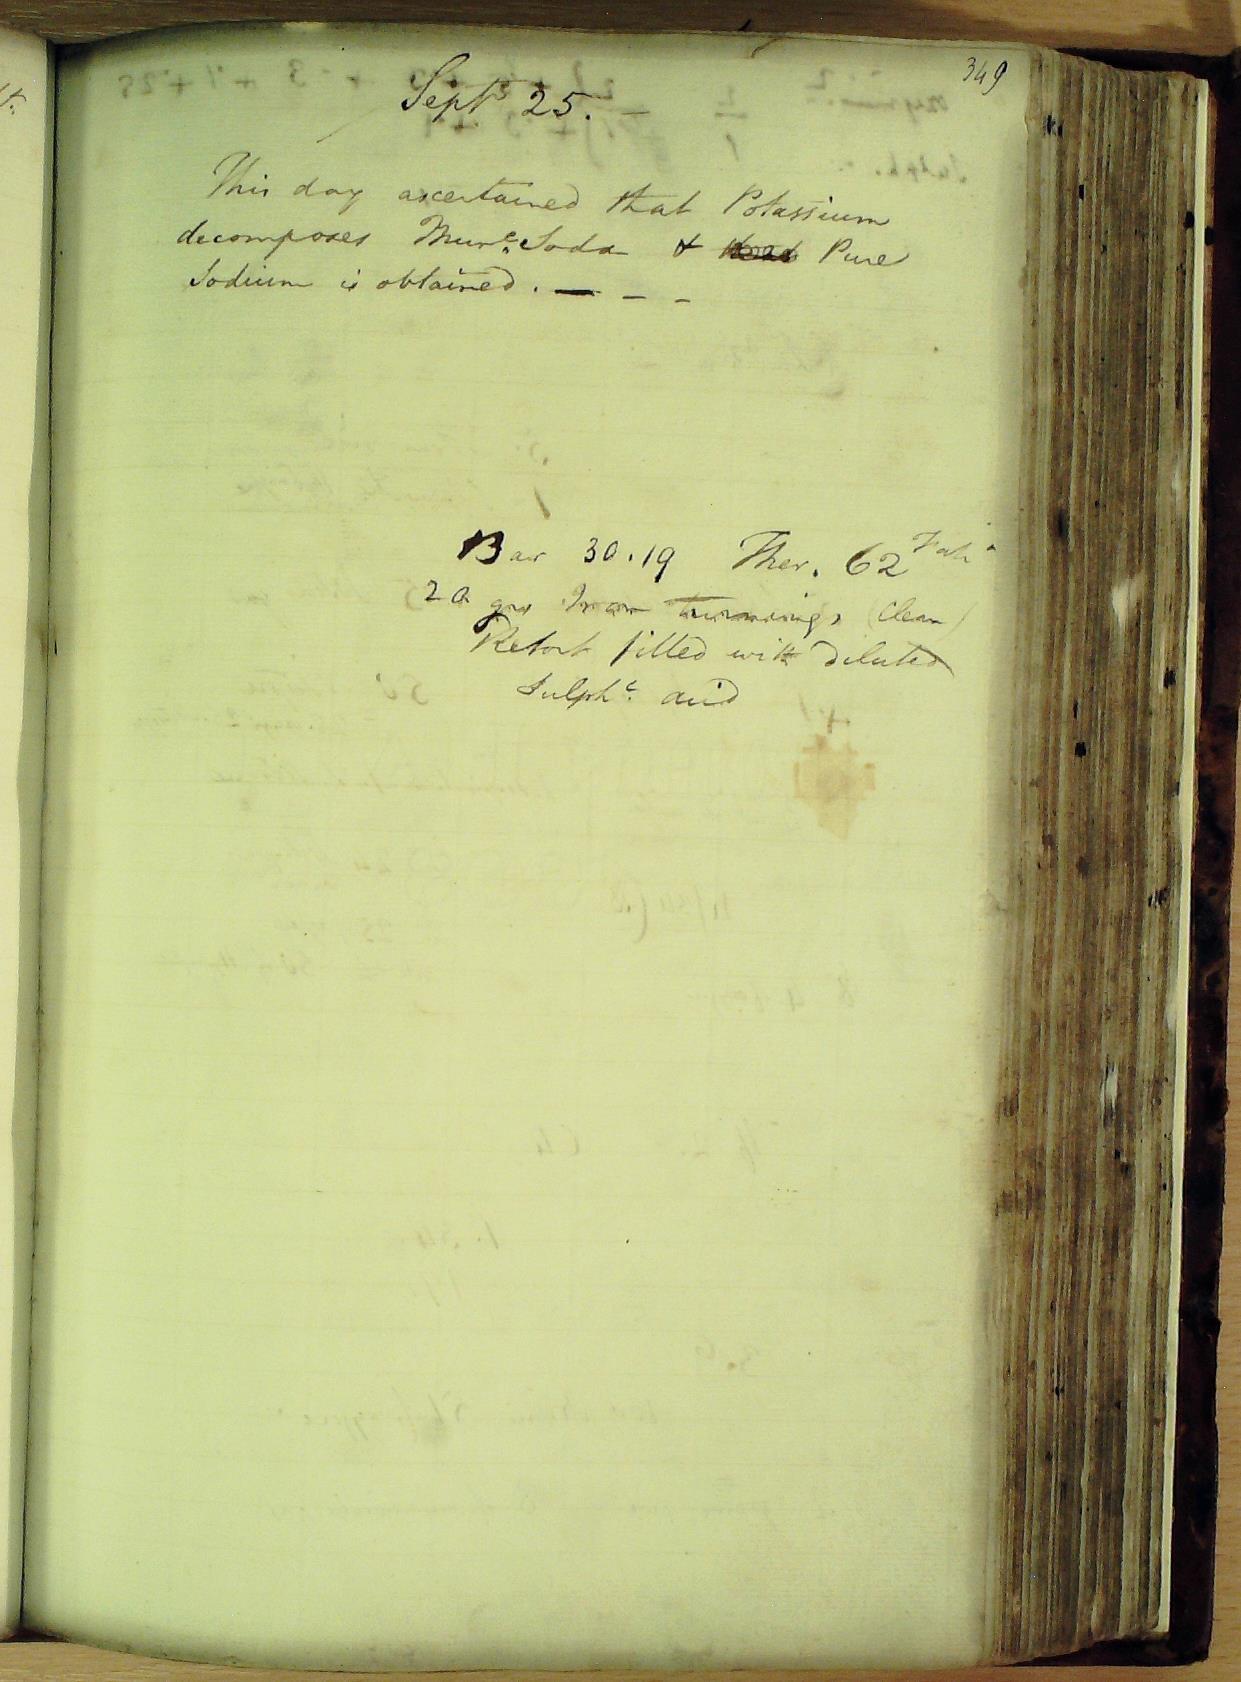 349
Sept 25. —
This day ascertained that Potassium
decomposes Mur.c Soda & Pure
Sodium is obtained. — – –
Bar 30.19 Ther. 62 Fah.
20 grs Iron turnings (clean)
Retort filled with diluted
Sulph.c acid